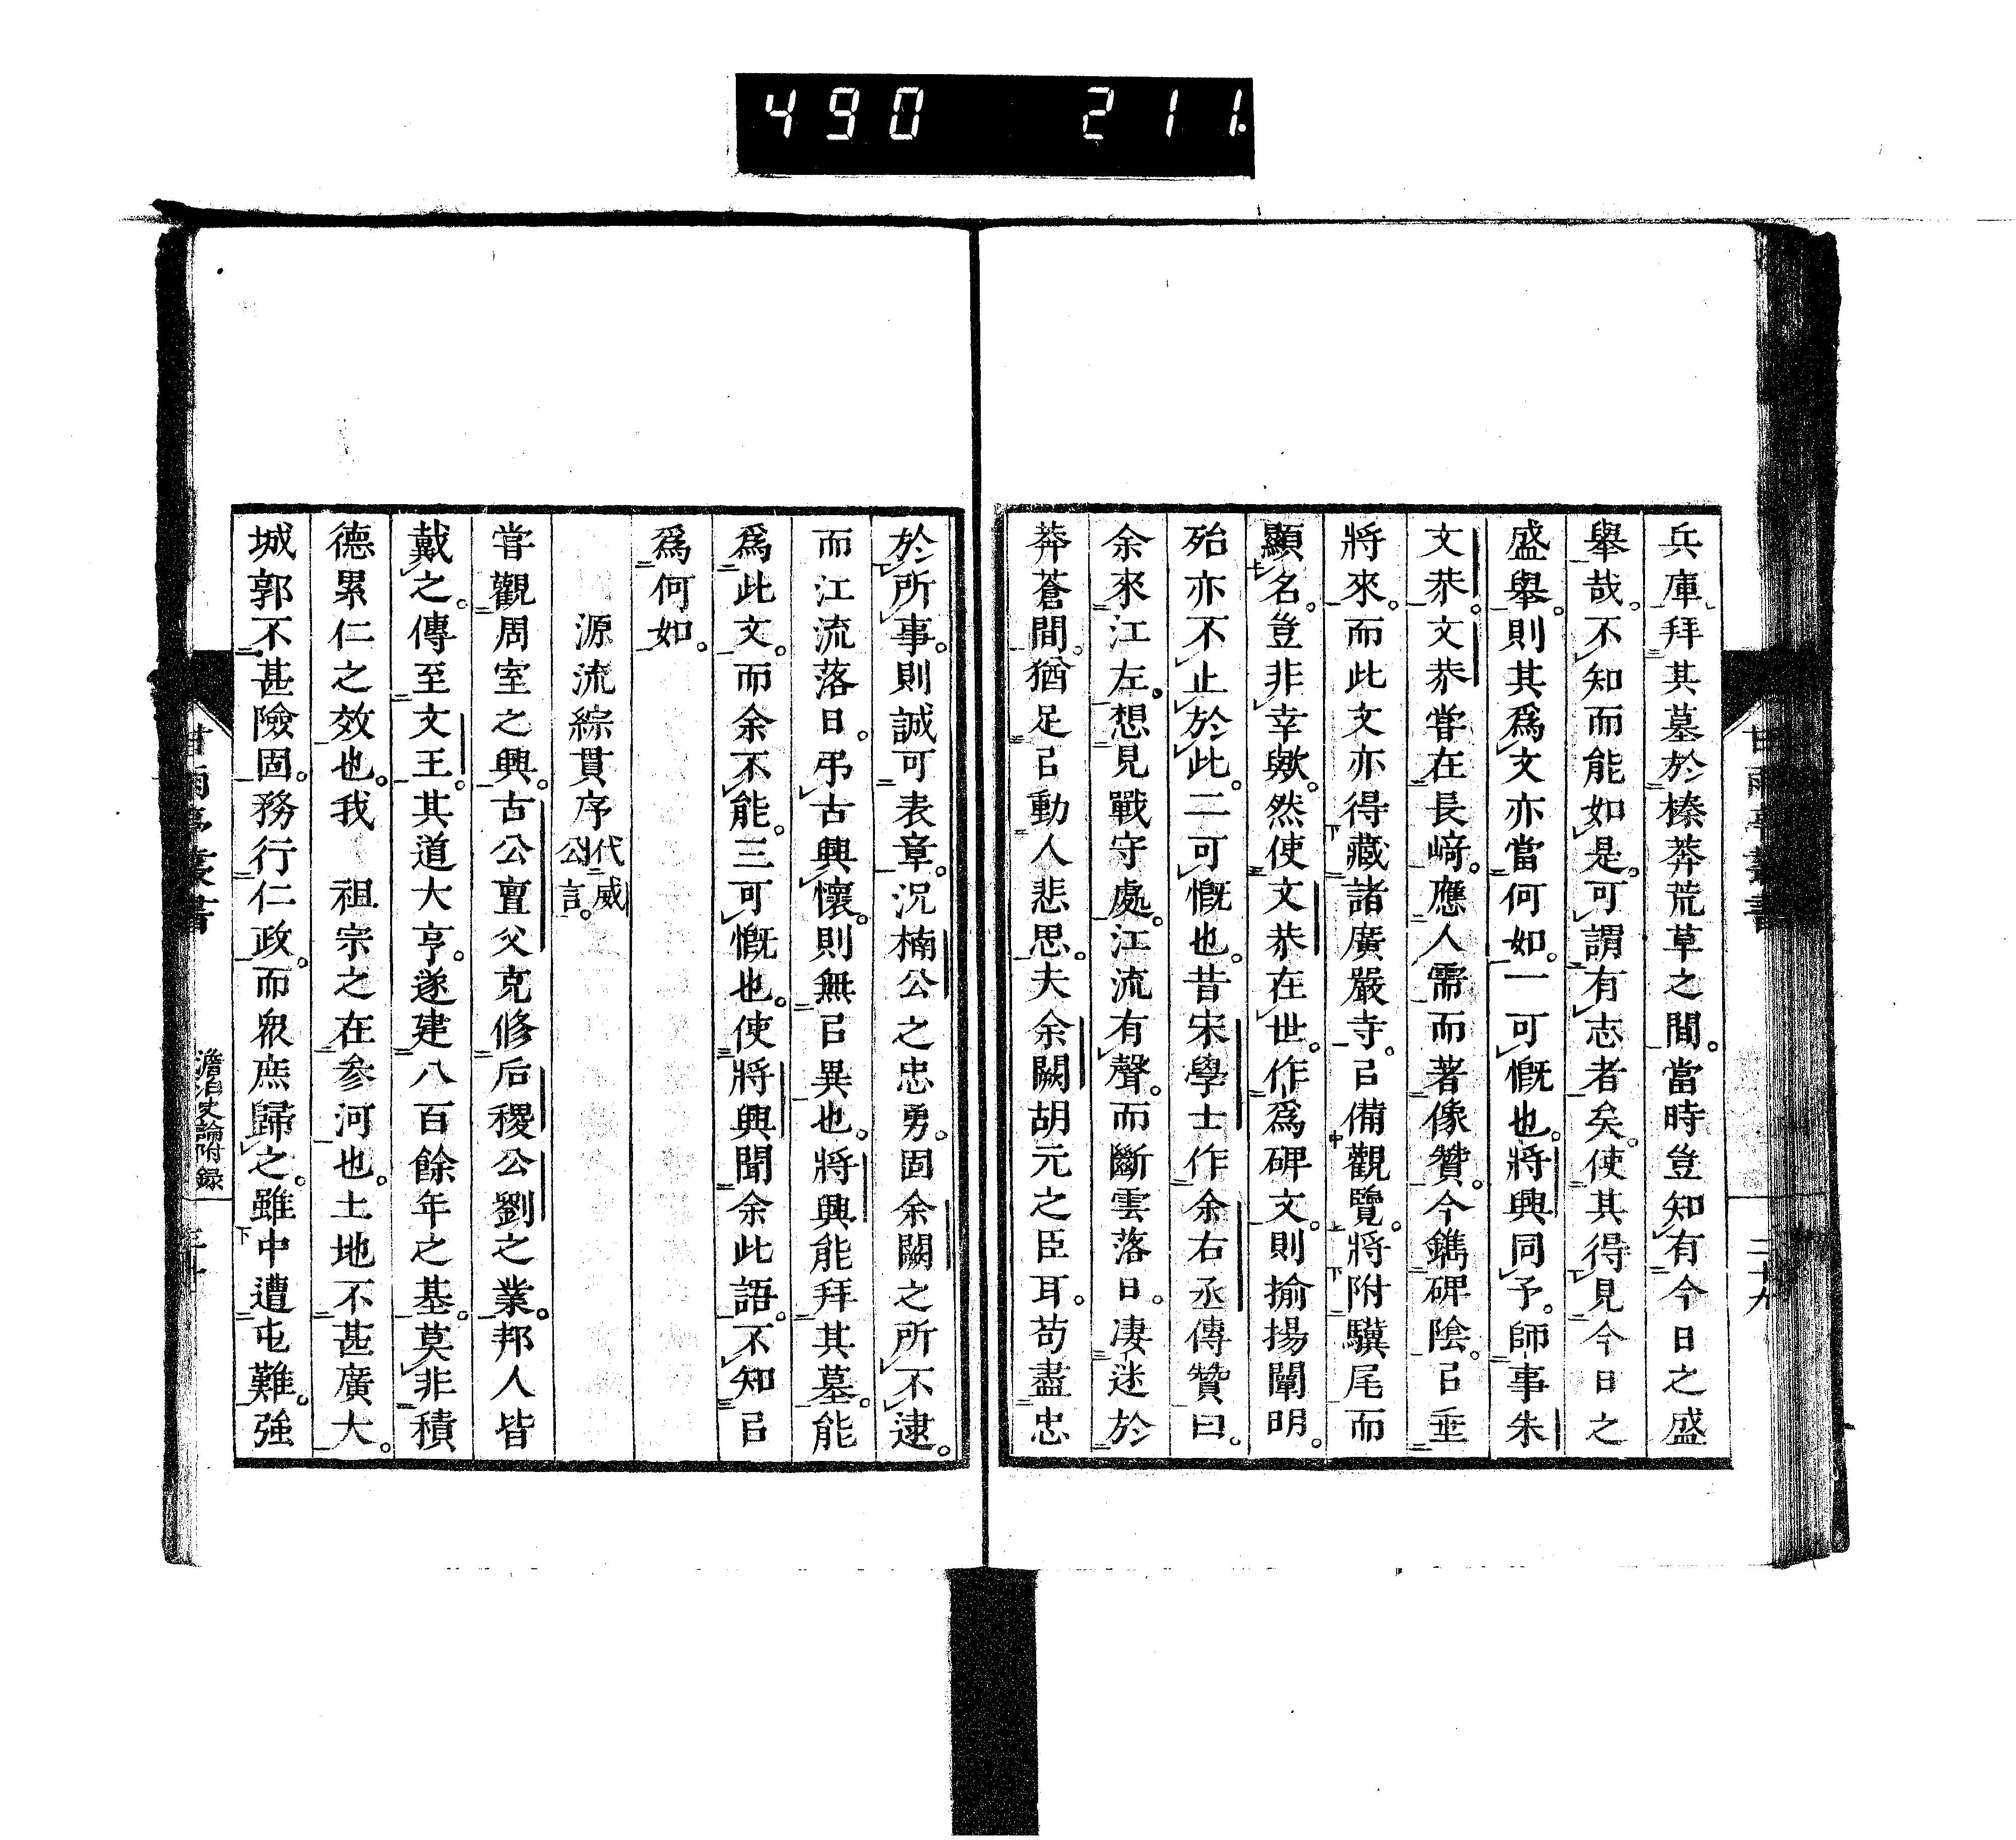 490 211
兵庫拜其墓於榛莽荒草之間。當時豈知有今日之盛
舉哉。不知而能如是。可謂有志者矣。使其得見今日之
盛舉。則其爲文亦當何如。一可慨也。將興同予。師事朱
文恭。文恭嘗在長﨑。應人需而著像贊。今鐫碑陰。㠯垂
將來。而此文亦得藏諸廣嚴寺。㠯備觀覽。將附驥尾而
顯名。豈非幸歟。然使文恭在世。作爲碑文。則揄揚闡明。
殆亦不止於此。二可慨也。昔宋學士作余右丞傳贊曰。
余來江左。想見戰守處。江流有聲。而斷雲落日。凄迷於
莽蒼間。猶足㠯動人悲思。夫余闕胡元之臣耳。苟盡忠
二十九
於所事。則誠可表章。況楠公之忠勇。固余闕之所不逮。
而江流落日。弔古興懷。則無㠯異也。將興能拜其墓。能
爲此文。而余不能。三可慨也。使將興聞余此語。不知㠯
爲何如。
源流綜貫序 代威公言。
嘗觀周室之興。古公亶父克修后稷公劉之業。邦人皆
戴之。傳至文王。其道大亨。遂建八百餘年之基。莫非積
德累仁之效也。我 祖宗之在参河也。土地不甚廣大。
城郭不甚險固。務行仁政。而衆庶歸之。雖中遭屯難。強
甘雨亭叢書
澹泊史論附録